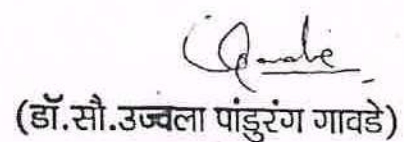 (डॉ.सौ.उज्वला पांडुरंग गावडे)